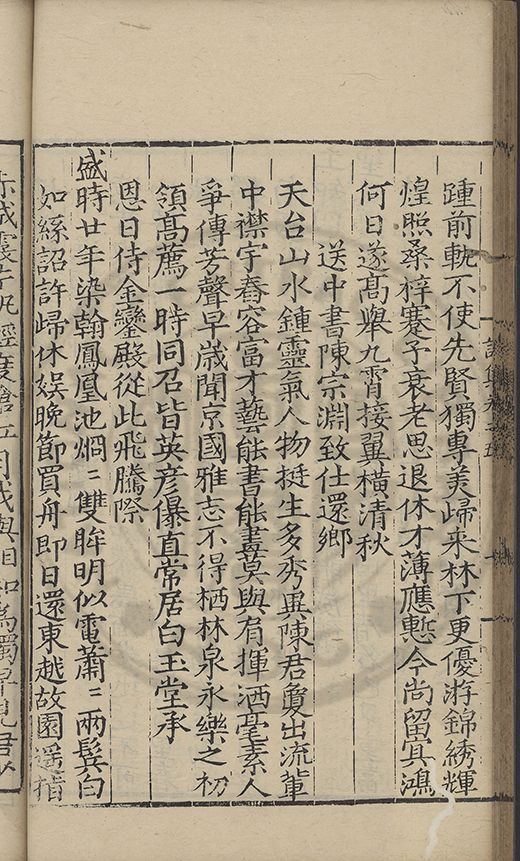 踵前軌不使先賢獨專美歸来林下更優游錦綉輝
煌照桑梓蹇予衰老思退休才薄應慙今尚留冥鴻
何日遂髙舉九霄接翼横清秋
送中書陳宗淵致仕還鄉
天台山水鍾靈氣人物挺生多秀異陳君夐出流輩
中襟宇舂容富才藝能書能畫莫與有揮洒毫素人
争傳芳聲早歲聞京國雅志不得栖林泉永樂之初
領髙薦一時同召皆英彦儤直常居白玉堂承
恩日侍金鑾殿從此飛騰際
盛時廿年染翰鳳凰池烱〻雙眸明似電蕭〻兩鬂白
如絲詔許歸休娱晚節買舟即日還東越故園遥指